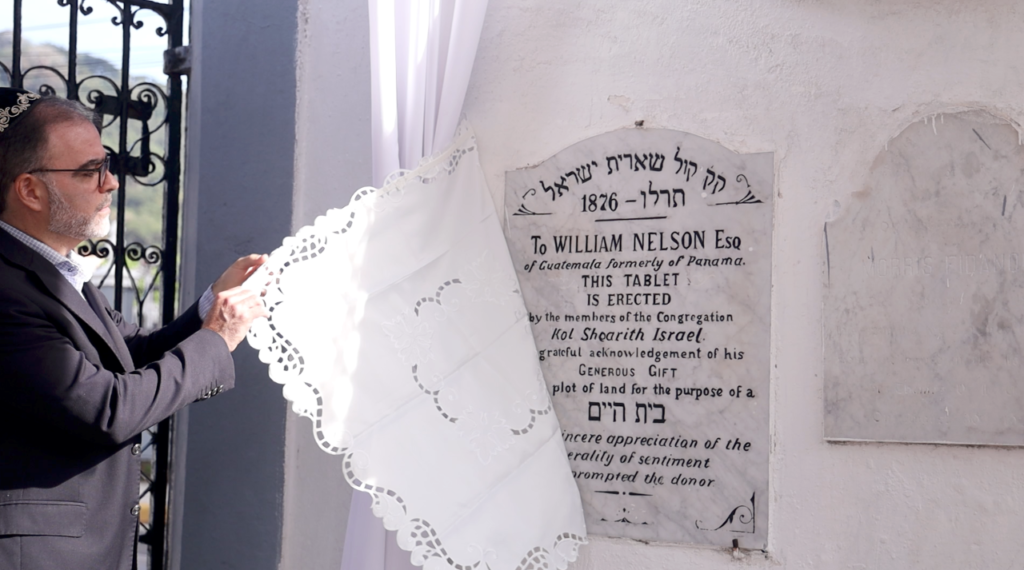 קק קול שארית ישראל
1876 – תרלו
To WILLIAM NELSON Esq
of Guatemala formerly of Panama.
THIS TABLET
IS ERECTED
by the members of the Congregation
Kol Shearith Israel.
grateful acknowledgement of his
GENEROUS GIFT
plot of land for the purpose of a
בית היים
incere appreciation of the
erality of sentiment
prompted the donor